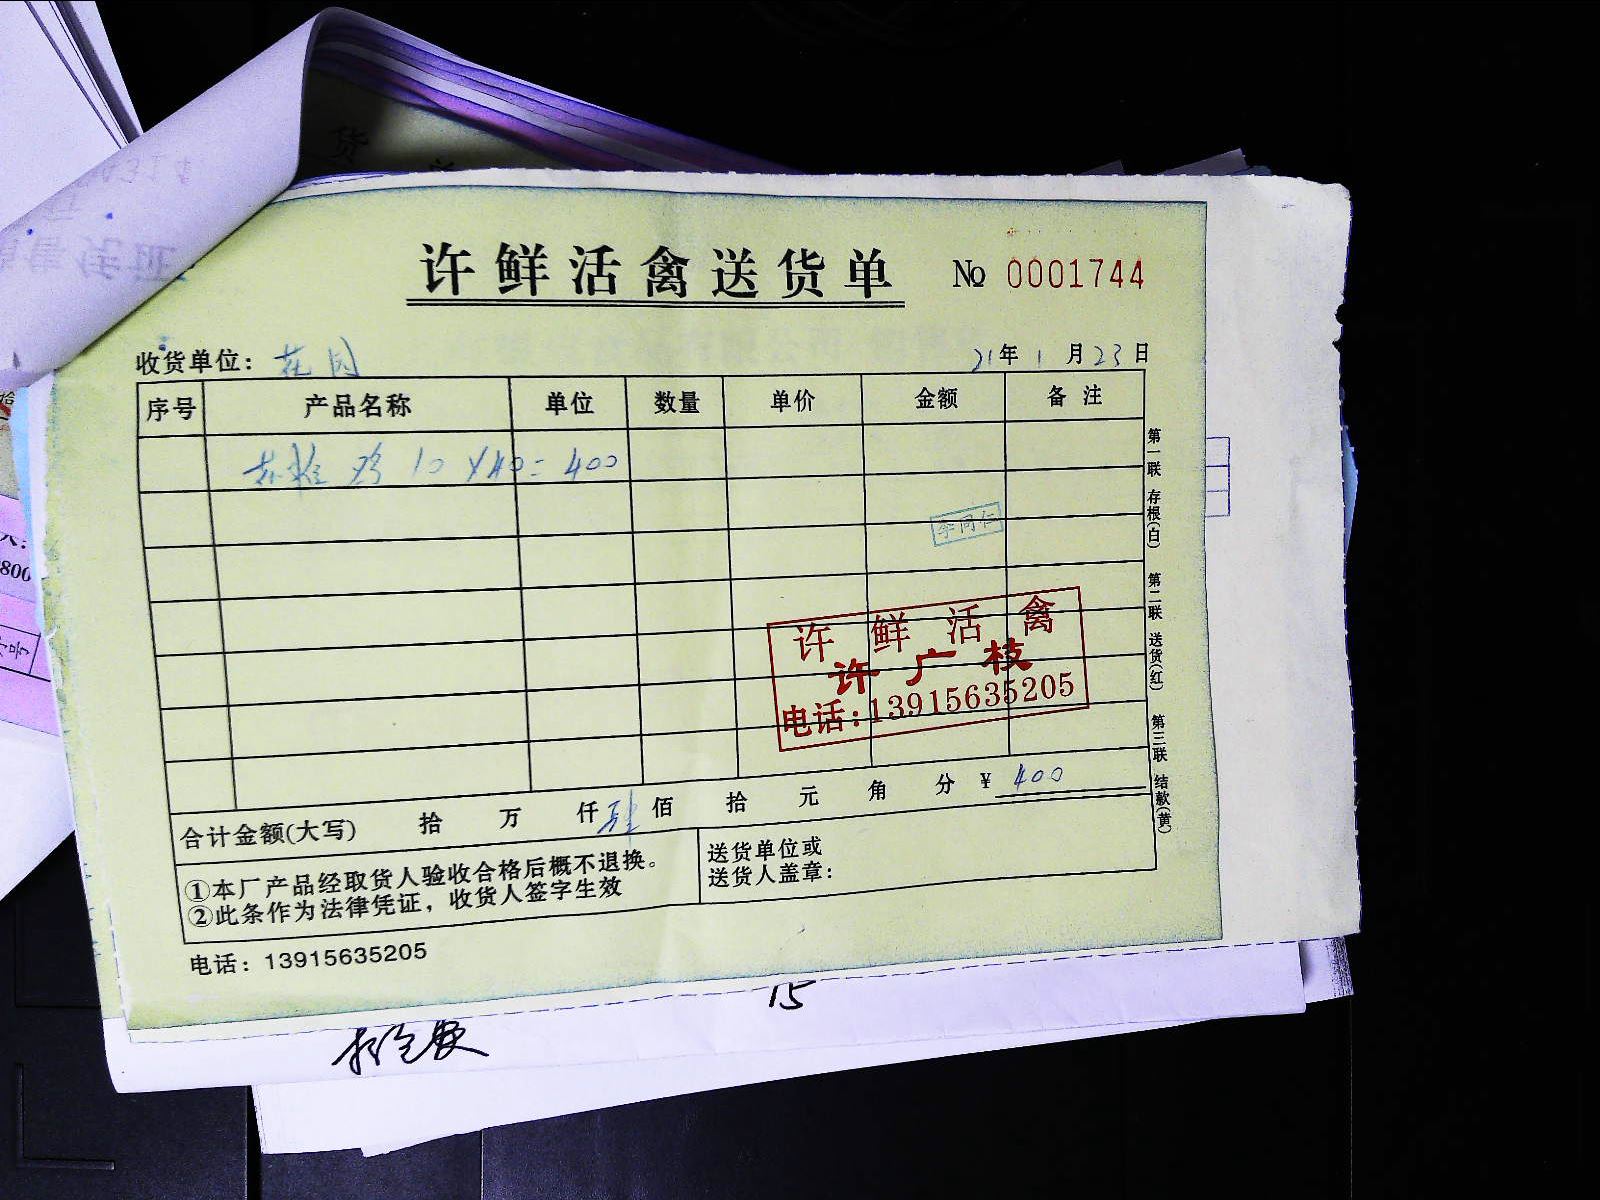 许鲜活禽送货单 No 0001744
收货单位：花园 21年1月23日
序号 产品名称 单位 数量 单价 金额 备注
10 X40= 400
李同仁
许鲜活禽
许广枝
电话：13915635205
合计金额(大写) 拾 万 仟 肆佰 拾 元 角 分 ¥ 400
①本厂产品经取货人验收合格后概不退换。
②此条作为法律凭证，收货人签字生效
送货单位或
送货人盖章：
电话：13915635205
第一联 存根(白) 第二联 送货(红) 第三联 结款(黄)
15
800